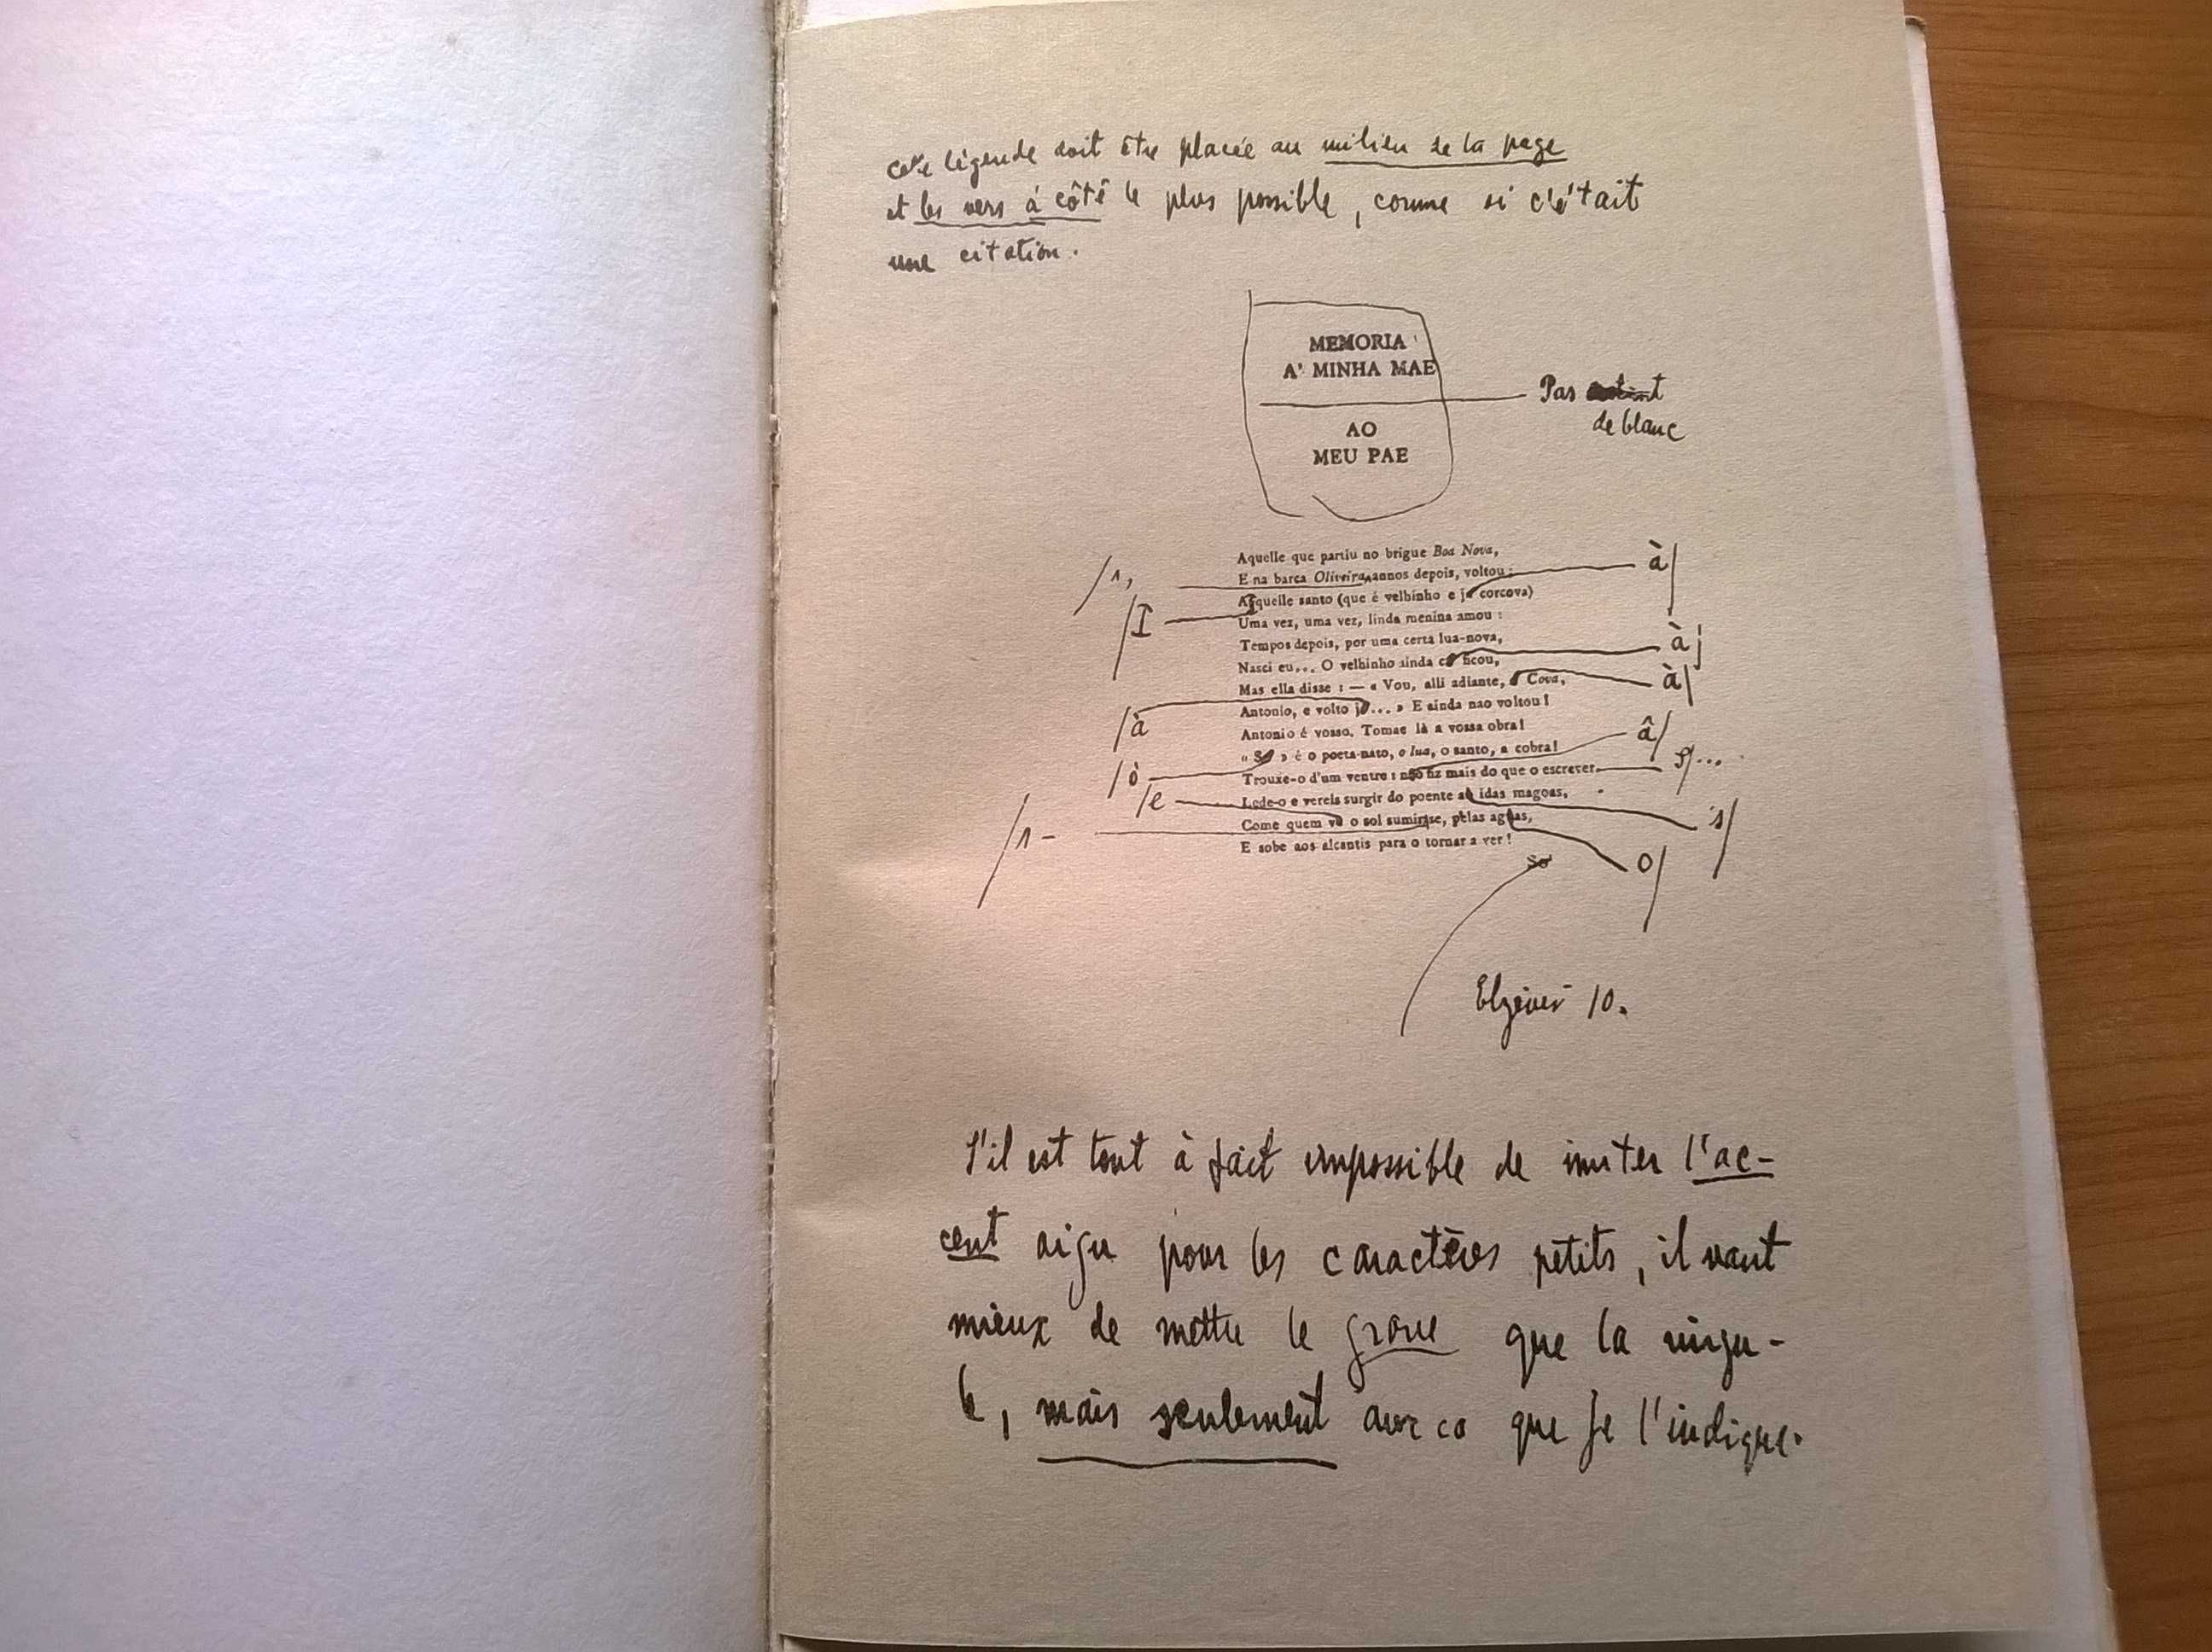 cette légende doit être placée au milieu de la page
et les vers à côté le plus possible, comme si c'était
une citation.
MEMORIA
A' MINHA MAE
Pas
de blanc
AO
MEU PAE
Aquelle que partiu no brigue Boa Nova,
/ à
/ ,
E na barca Oliveira, annos depois, voltou:
/ I
Aquelle santo (que é velhinho e já corcova)
Uma vez, uma vez, linda menina amou:
Tempos depois, por uma certa lua-nova,
à /
Nasci eu... O velhinho ainda cá ficou,
à /
Mas ella disse: — « Vou, alli adiante, á Cova,
/ à
Antonio, e volto já... » E ainda nao voltou!
Antonio é vosso. Tomae là a vossa obra!
â /
« Só » é o poeta-nato, o lua, o santo, a cobra!
/ ò
Trouxe-o d'um ventre: não fiz mais do que o escrever
/ e
Lede-o e vereis surgir do poente as idas magoas,
s /
/ -
Come quem vê o sol sumir-se, pelas agoas,
E sobe aos alcantis para o tornar a ver!
So
o /
Elzévir 10.
S'il est tout à fait impossible de imiter l'ac-
cent aigu pour les caractères petits, il vaut
mieux de mettre le grave que la virgu-
le, mais seulement que je l'indique.